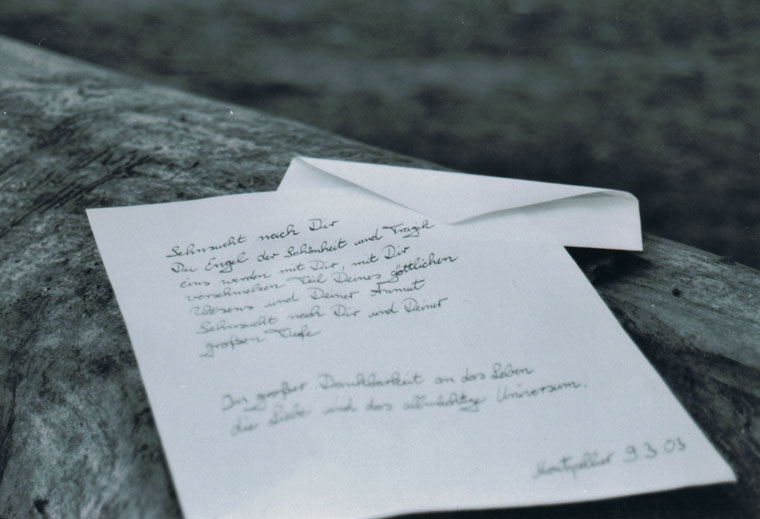 Sehnsucht nach Dir
Du Engel der Schönheit und Tragik
eins werden mit Dir, mit Dir
verschmelzen Teil Deines göttlichen
Wesens und Deiner Anmut
Sehnsucht nach Dir und Deiner
großen Tiefe
In großer Dankbarkeit an das Leben
die Liebe und das allmächtige Universum.
Montpellier 9.3.03